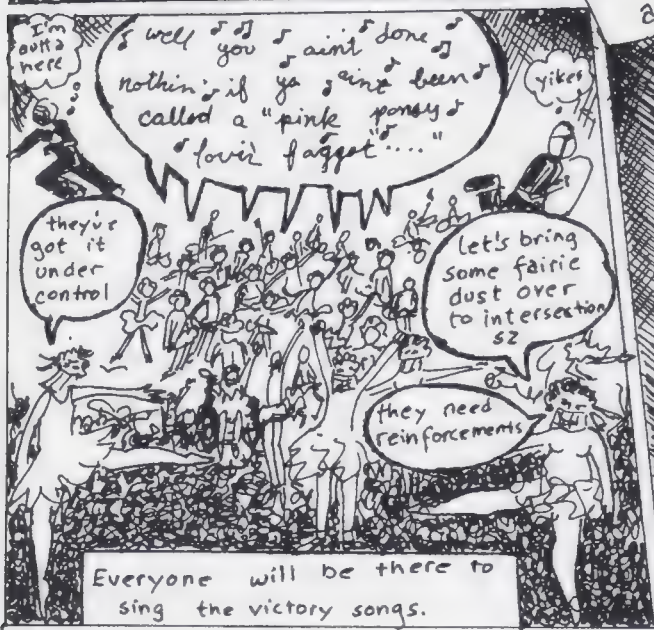 I'm
outta
here
well you ain't done
nothin' if ya aint been
called a "pink pansy
lovin faggot"...."
yikes
they've
got it
under
control
Let's bring
some fairie
dust over
to intersection
SZ
they need
reinforcements
Everyone will be there to
sing the victory songs.